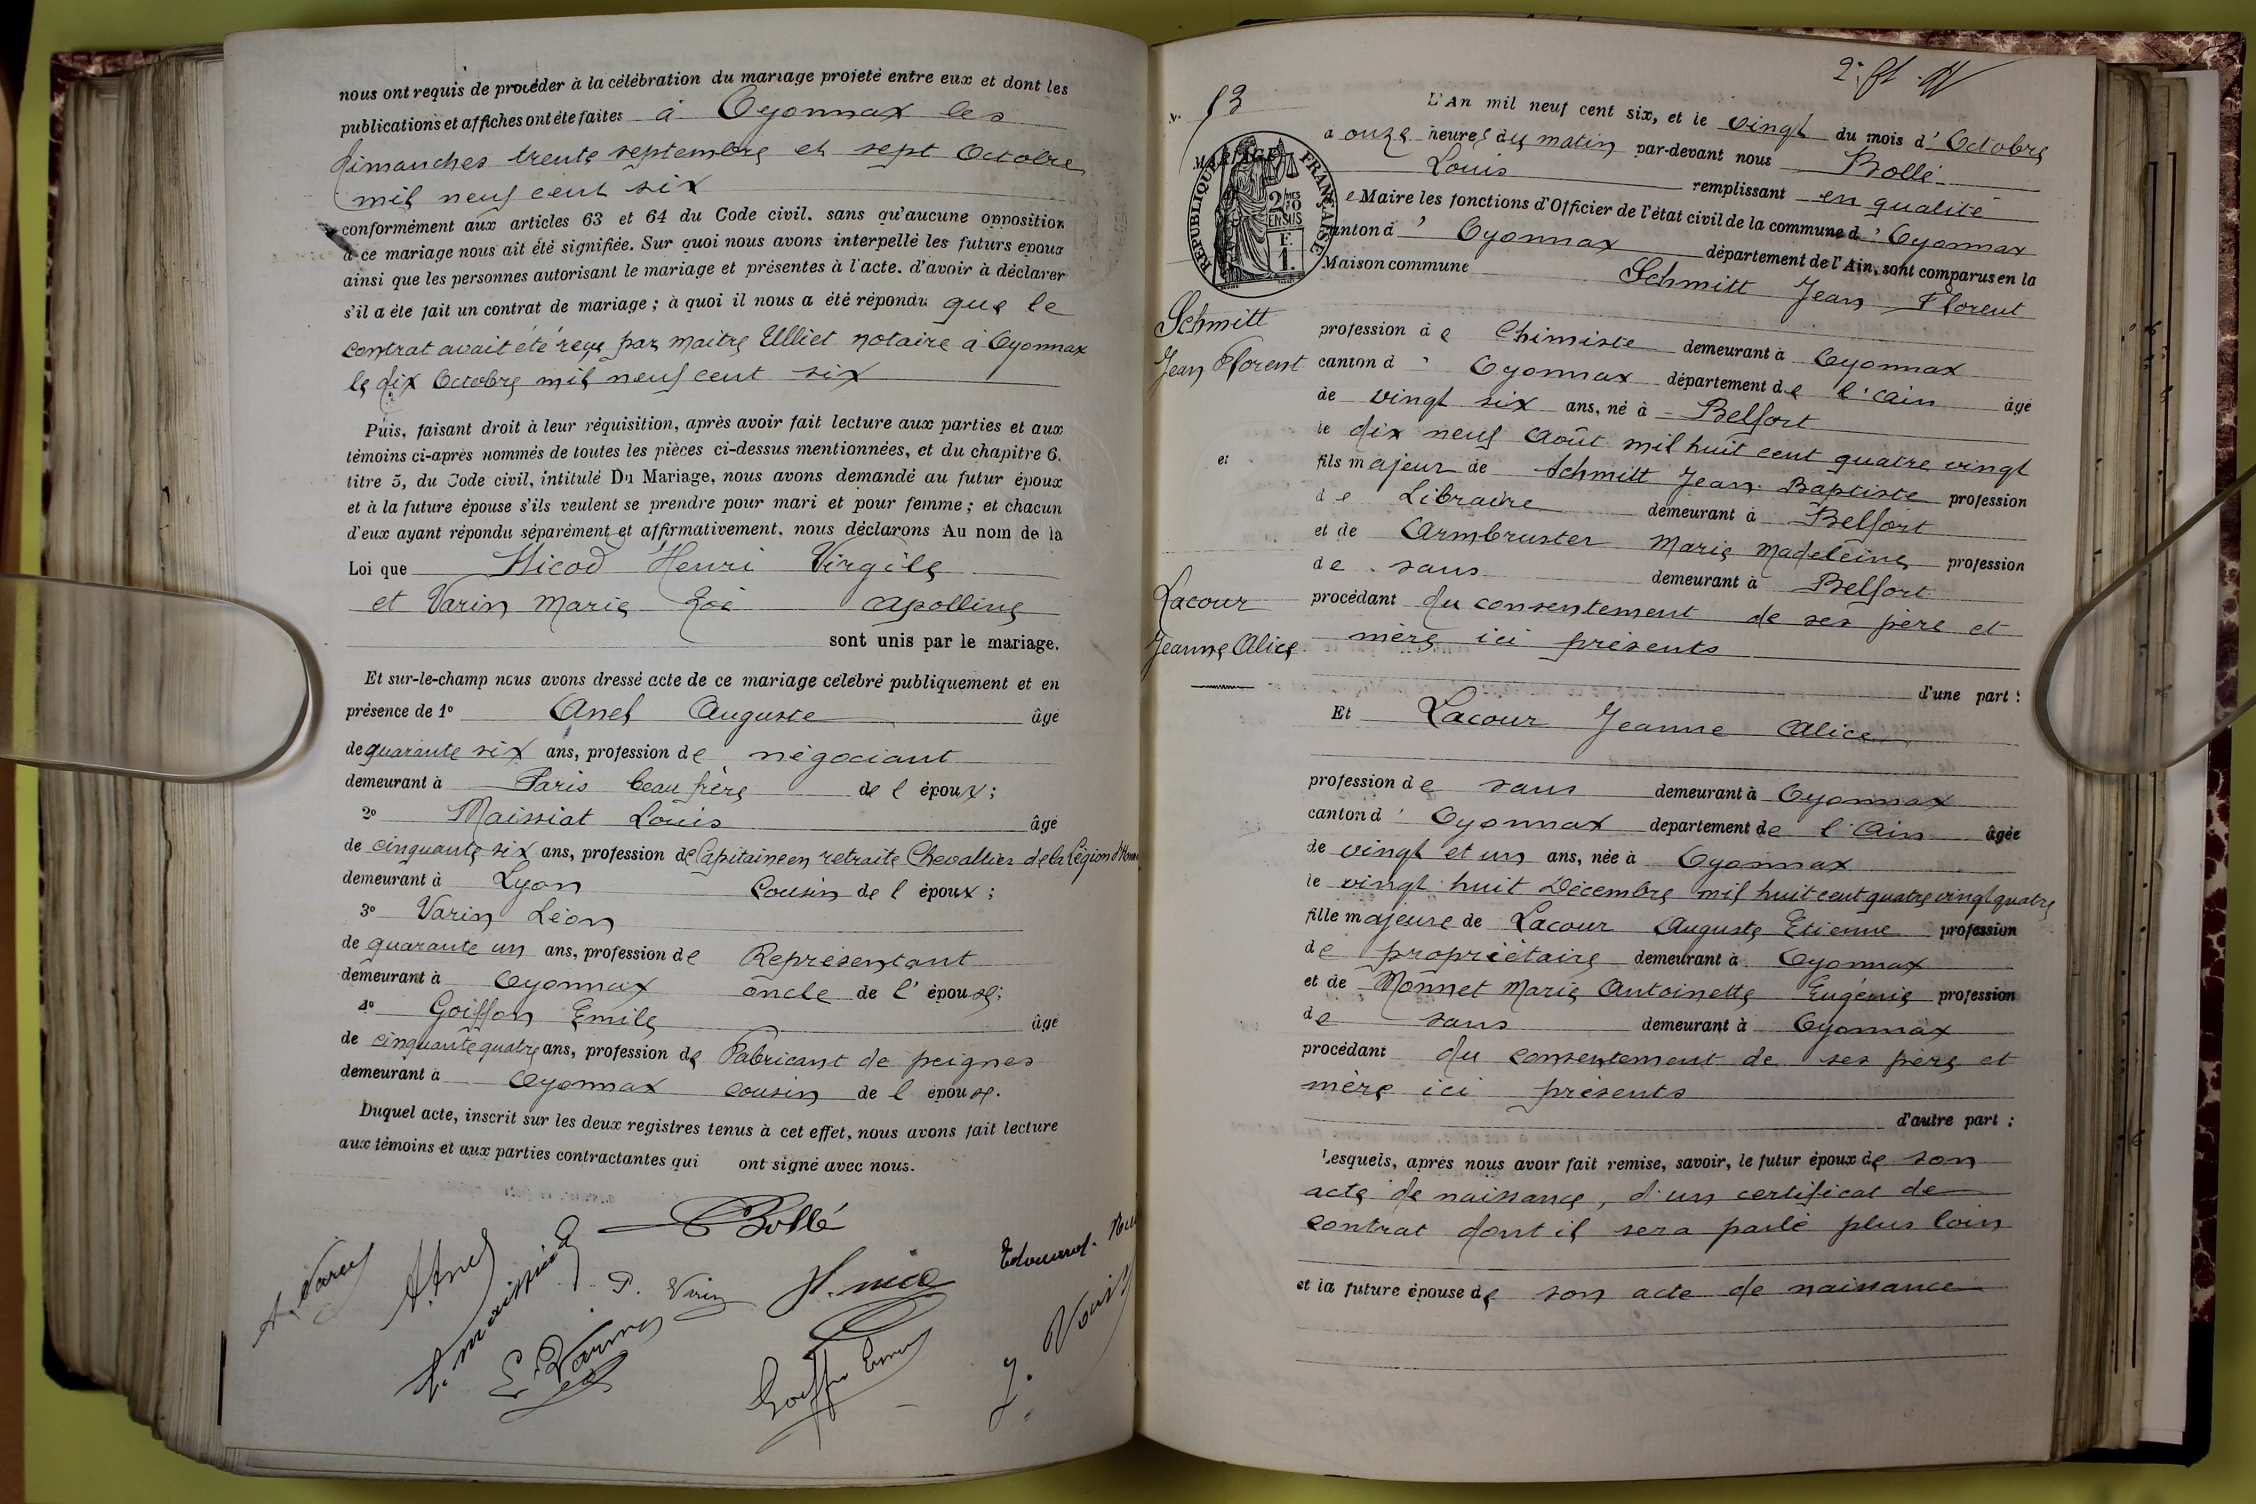 nous ont requis de procéder à la célébration du mariage projeté entre eux et dont les
publications et affiches ont été faites à Oyonnax les
dimanches trente septembre et sept Octobre
mil neuf cent six
conformément aux articles 63 et 64 du Code civil. sans qu'aucune opposition
à ce mariage nous ait été signifiée. Sur quoi nous avons interpellé les futurs époux
ainsi que les personnes autorisant le mariage et présentes à l'acte. d'avoir à déclarer
s'il a été fait un contrat de mariage ; à quoi il nous a été répondu que le
contrat avait été reçu par maître Ulliet notaire à Oyonnax
le dix Octobre mil neuf cent six
Puis, faisant droit à leur réquisition, après avoir fait lecture aux parties et aux
témoins ci-après nommés de toutes les pièces ci-dessus mentionnées, et du chapitre 6.
titre 5, du Code civil, intitulé Du Mariage, nous avons demandé au futur époux
et à la future épouse s'ils veulent se prendre pour mari et pour femme ; et chacun
d'eux ayant répondu séparément et affirmativement. nous déclarons Au nom de la
Loi que Nicod Henri Virgile
et Varin Marie Zoé Apolline
sont unis par le mariage.
Et sur-le-champ nous avons dressé acte de ce mariage célébré publiquement et en
présence de 1° Anel Auguste âgé
de quarante six ans, profession de négociant
demeurant à Paris beau frère de l époux ;
2° Maissiat Louis âgé
de cinquante six ans, profession de Capitaine en retraite Chevallier de la Légion d'Hon
demeurant à Lyon Cousin de l époux ;
3° Varin Léon
de quarante un ans, profession de Représentant
demeurant à Oyonnax oncle de l' épouse;
4° Goiffon Emile âgé
de cinquante quatre ans, profession de Fabricant de peignes
demeurant à Oyonnax cousin de l épouse.
Duquel acte, inscrit sur les deux registres tenus à cet effet, nous avons fait lecture
aux témoins et aux parties contractantes qui ont signé avec nous.
Bollé
A. Anel
Edouard
N° 53
L'An mil neuf cent six, et le vingt du mois d' Octobre
à onze heures du matin par-devant nous Bollé
Louis remplissant en qualité
e Maire les fonctions d'Officier de l'état civil de la commune d' Oyonnax
canton d' Oyonnax département de l'Ain, sont comparus en la
Maison commune Schmitt Jean Florent
MARIAGE
RÉPUBLIQUE FRANÇAISE
Schmitt
Jean Florent
profession de Chimiste demeurant à Oyonnax
canton d' Oyonnax département de l'Ain âgé
de vingt six ans, né à Belfort
le dix neuf Août mil huit cent quatre vingt
et
fils majeur de Schmitt Jean Baptiste profession
de Libraire demeurant à Belfort
et de Armbruster Marie Madeleine profession
de sans demeurant à Belfort
Lacour
Jeanne Alice
procédant du consentement de ses père et
mère ici présents
d'une part :
Et Lacour Jeanne Alice
profession de sans demeurant à Oyonnax
canton d' Oyonnax département de l'Ain âgée
de vingt et un ans, née à Oyonnax
le vingt huit Décembre mil huit cent quatre vingt quatre
fille majeure de Lacour Auguste Etienne profession
de propriétaire demeurant à Oyonnax
et de Monnet Marie Antoinette Eugénie profession
de sans demeurant à Oyonnax
procédant du consentement de ses père et
mère ici présents
d'autre part :
Lesquels, après nous avoir fait remise, savoir, le futur époux de son
acte de naissance, d'un certificat de
contrat dont il sera parlé plus loin
et la future épouse de son acte de naissance